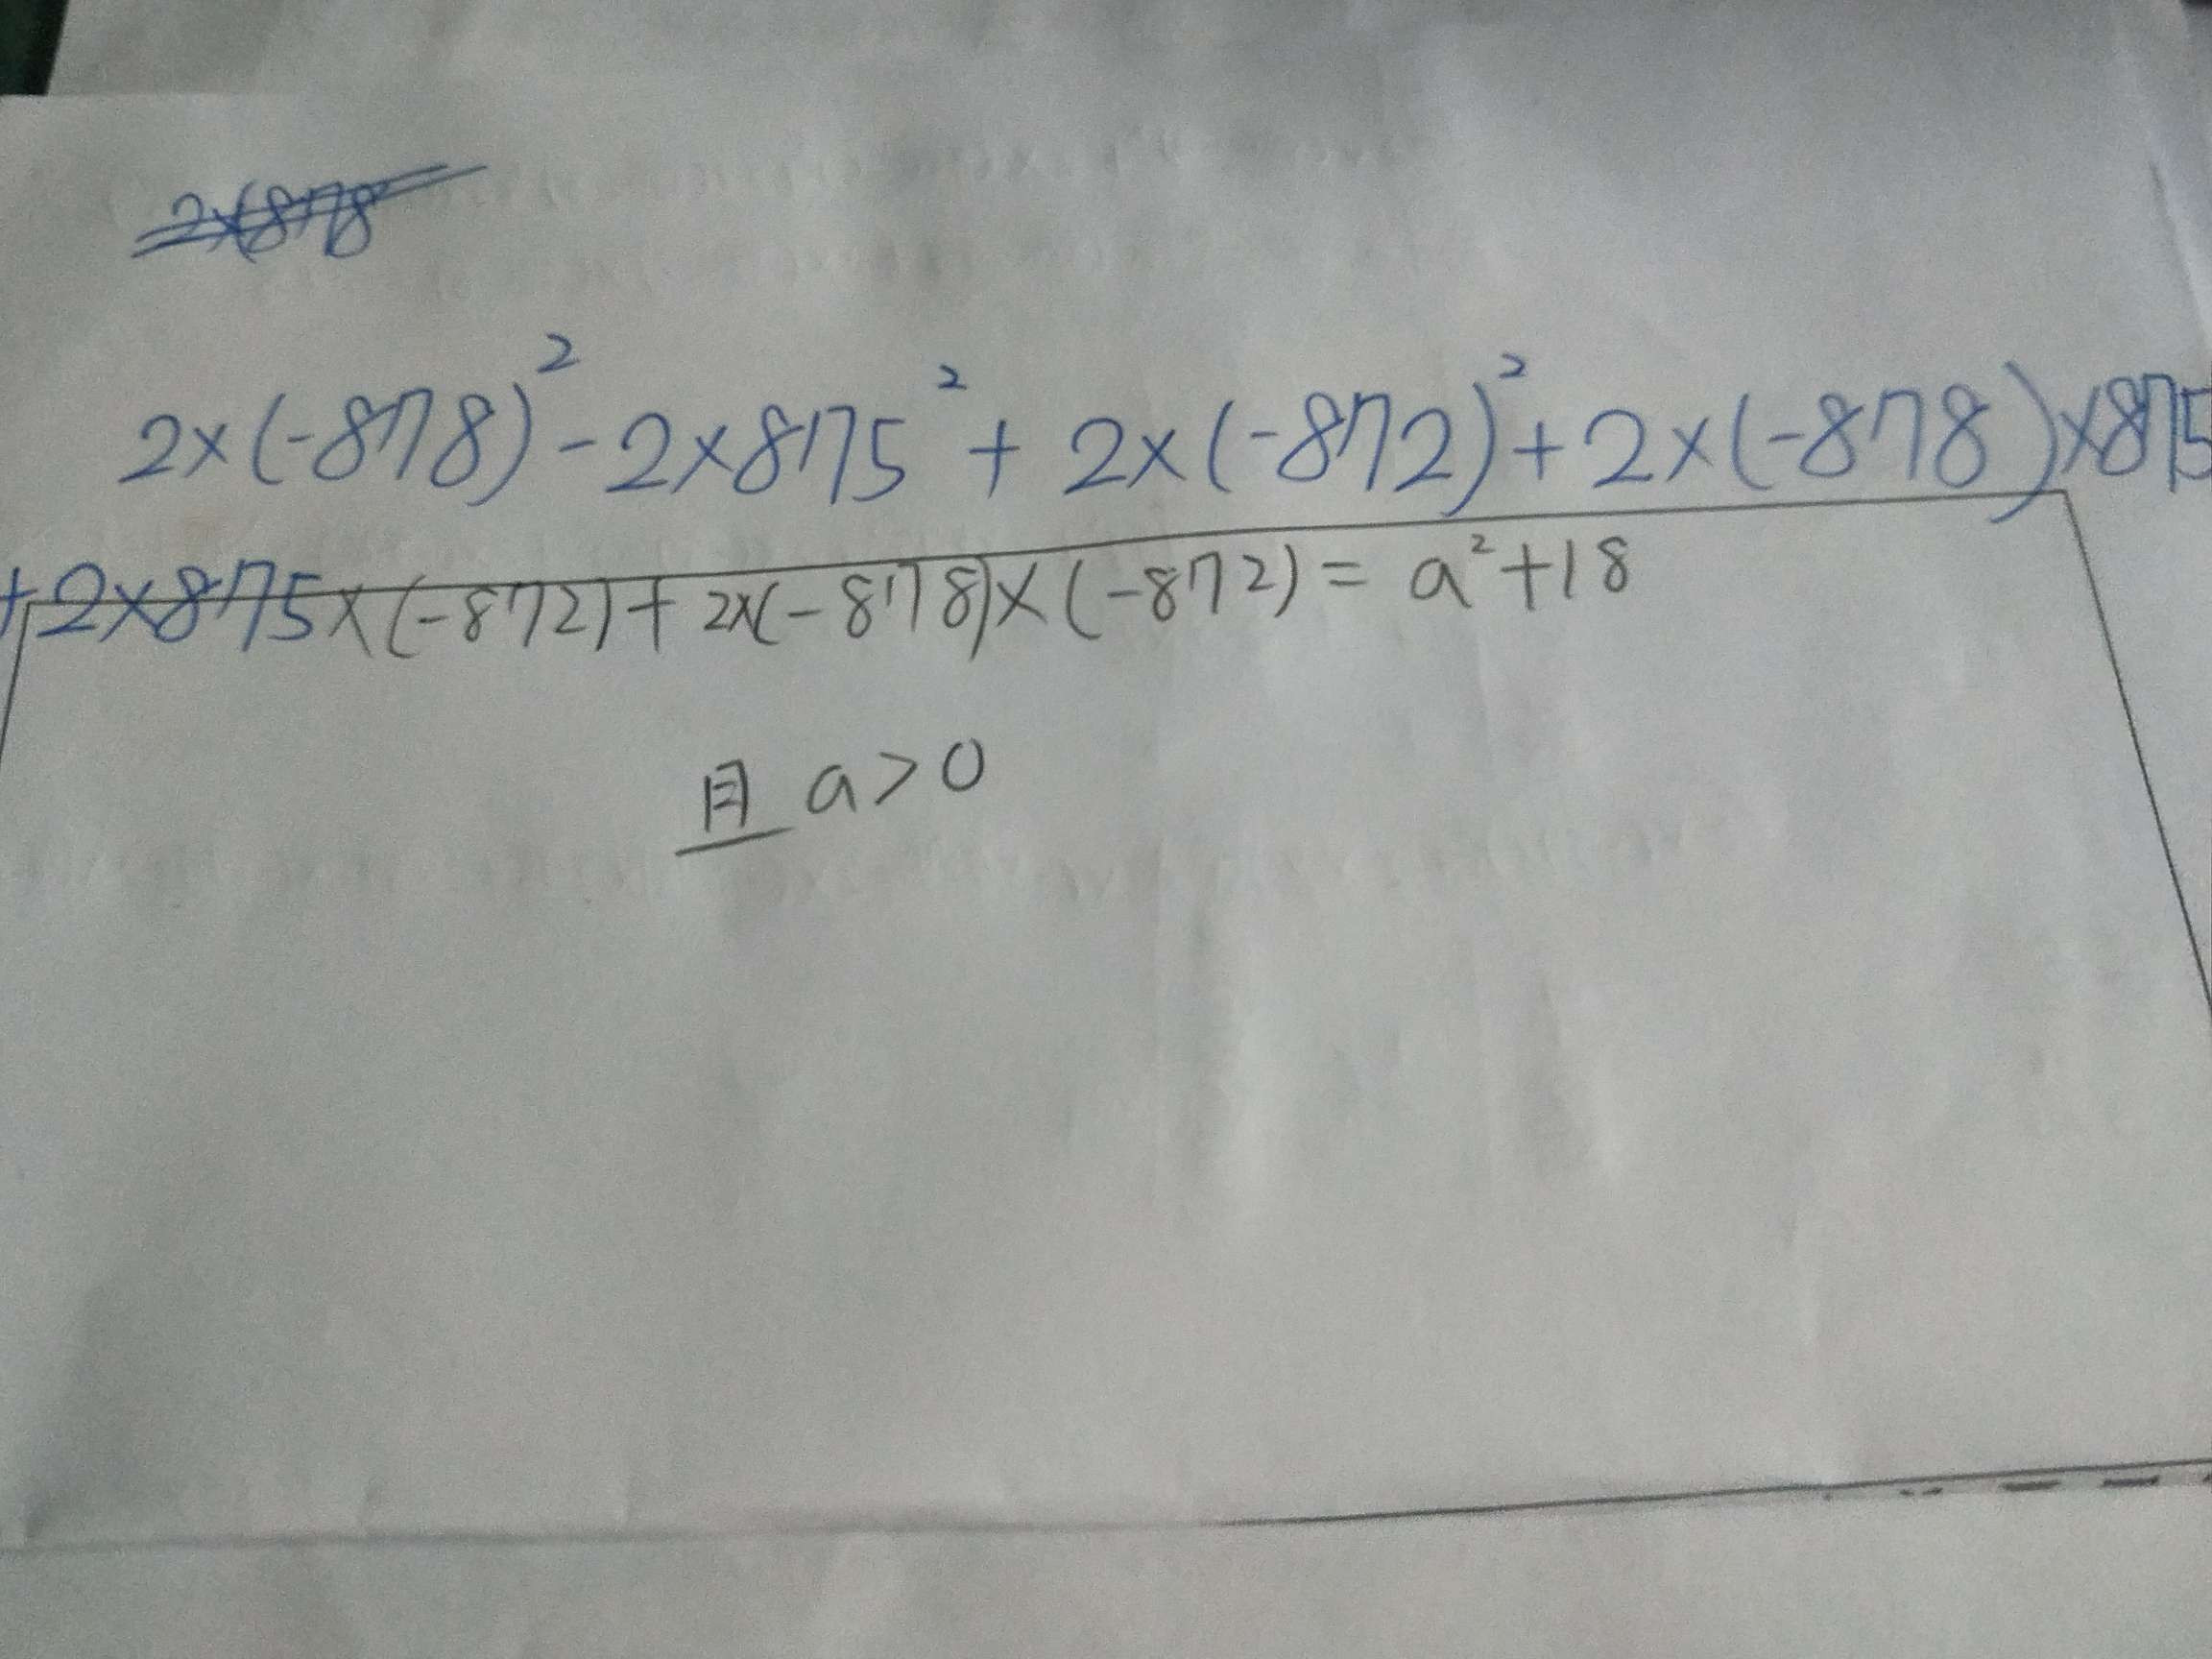 2×(878
2×(-878)²-2×875²+2×(-872)²+2×(-878)×875
+2×875×(-872)+2×(-878)×(-872)=a²+18
且 a>0